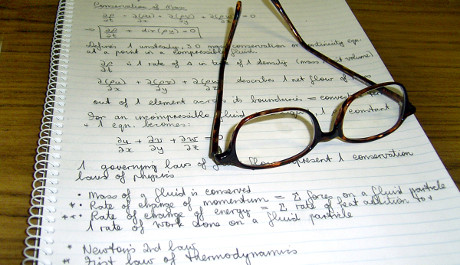 Conservation of Mass
∂ρ/∂t + ∂(ρu)/∂x + ∂(ρv)/∂y + ∂(ρw)/∂z = 0
⇒ ∂ρ/∂t + div(ρu) = 0
Defines 1 unsteady, 3D mass conservation or continuity eqn
at a point in a compressible fluid.
∂ρ/∂t is rate of Δ in time of 1 density (mass volume)
∂(ρu)/∂x + ∂(ρv)/∂y + describes 1 net flow of
out of 1 element across its boundaries =
For an incompressible fluid constant
+ 1 eqn. becomes:
∂u/∂x + ∂v/∂y + ∂w/∂z =
1 governing laws of flow represent 1 conservation
laws of physics
• Mass of a fluid is conserved
• Rate of change of momentum = Σ forces on a fluid particle
• Rate of change of energy = Σ rate of heat addition to +
1 rate of work done on a fluid particle
• Newton's 2nd law
First law of thermodynamics